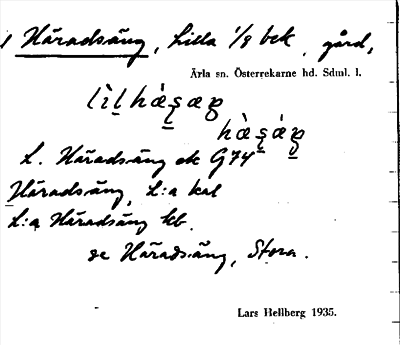 Häradsäng, Lilla 1/8 bek. gård,
Ärla sn. Österrekarne hd. Sdml. l.
L. Häradsäng ek G74
Häradsäng, L:a kal
L:a Häradsäng kb.
se Häradsäng, Stora.
Lars Hellberg 1935.